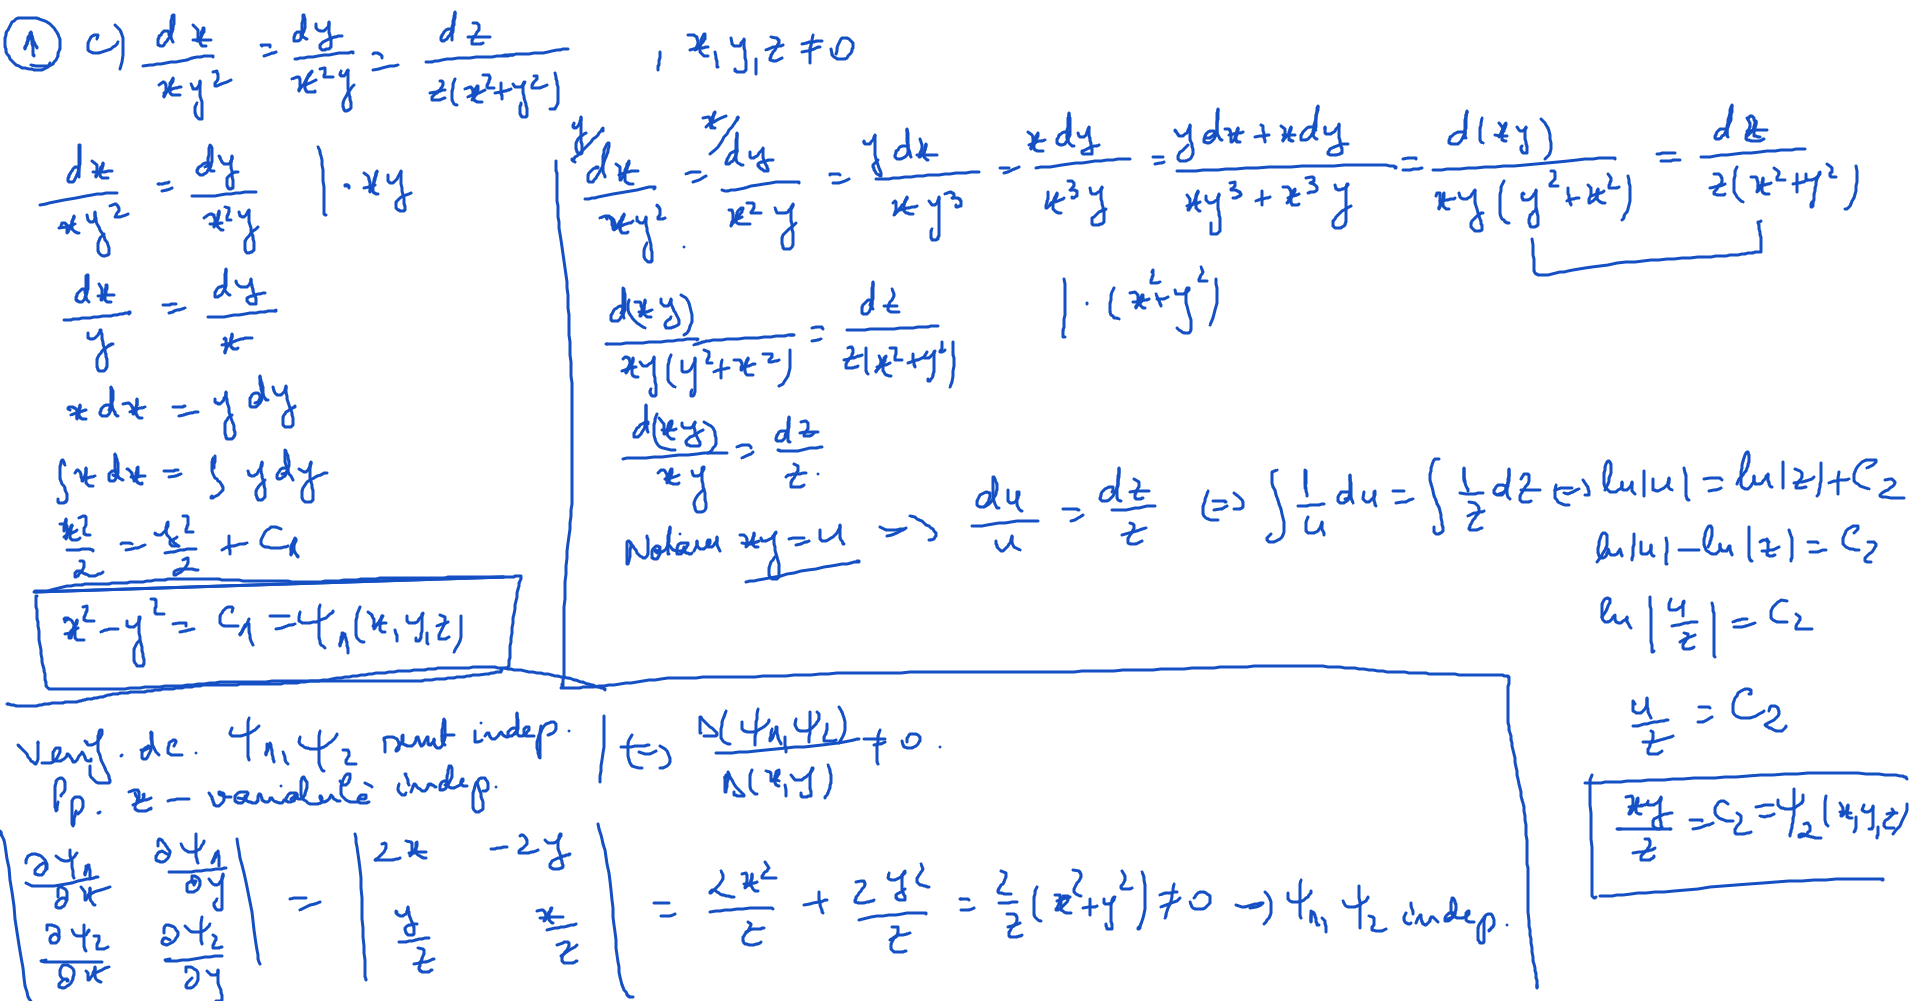 ① c) dx/(xy²) = dy/(x²y) = dz/(z(x²+y²)) , x, y, z ≠ 0
dx/(xy²) = dy/(x²y) | · xy
dx/y = dy/x
x dx = y dy
∫ x dx = ∫ y dy
x²/2 = y²/2 + C₁
x² − y² = C₁ = Ψ₁(x, y, z)
y/ dx/(xy²) = x/ dy/(x²y) = y dx/(xy³) = x dy/(x³y) = (y dx + x dy)/(xy³ + x³y) = d(xy)/(xy(y²+x²)) = dz/(z(x²+y²))
d(xy)/(xy(y²+x²)) = dz/(z(x²+y²)) | · (x²+y²)
d(xy)/(xy) = dz/z.
Notăm xy = u => du/u = dz/z (=) ∫ 1/u du = ∫ 1/z dz (=) ln|u| = ln|z| + C₂
ln|u| − ln|z| = C₂
ln|u/z| = C₂
u/z = C₂
xy/z = C₂ = Ψ₂(x, y, z)
Verif. dc. Ψ₁, Ψ₂ sunt indep. | (=) D(Ψ₁, Ψ₂)/D(x, y) ≠ 0.
Pp. z – variabilă indep.
|∂Ψ₁/∂x ∂Ψ₁/∂y; ∂Ψ₂/∂x ∂Ψ₂/∂y| = |2x −2y; y/z x/z| = 2x²/z + 2y²/z = 2/z (x²+y²) ≠ 0 → Ψ₁, Ψ₂ indep.